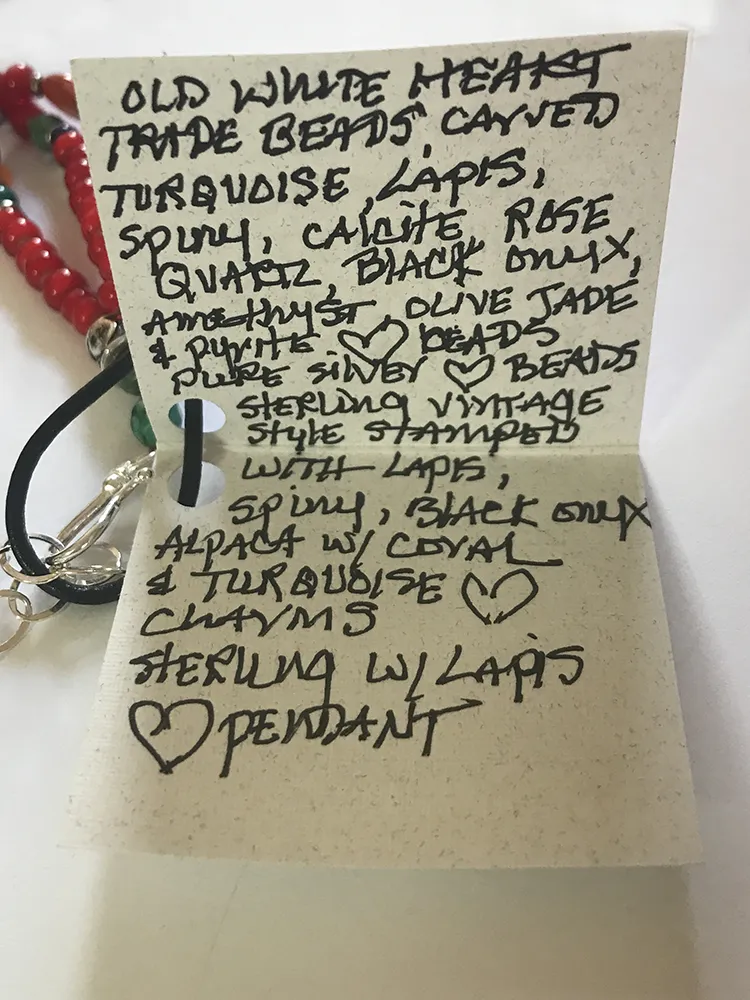 OLD WHITE HEART
TRADE BEADS, CARVED
TURQUOISE, LAPIS,
SPINY, CALCITE, ROSE
QUARTZ, BLACK ONYX,
AMETHYST, OLIVE JADE
& PYRITE ♡ BEADS
PURE SILVER ♡ BEADS
STERLING VINTAGE
STYLE STAMPED
WITH LAPIS,
SPINY, BLACK ONYX
ALPACA W/ CORAL
& TURQUOISE ♡
CHARMS
STERLING W/ LAPIS
♡ PENDANT